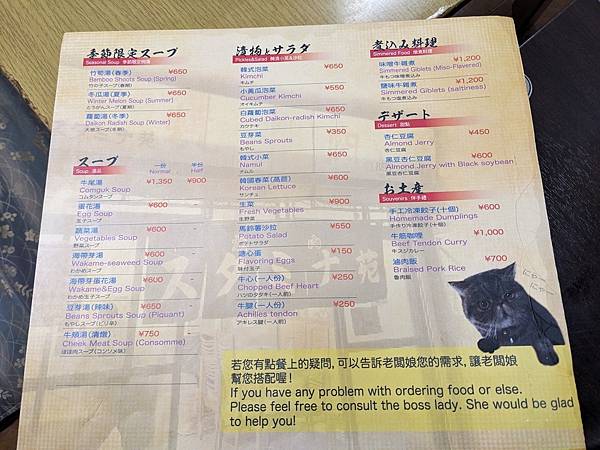 季節限定スープ
Seasonal Soup 季節限定例湯
竹筍湯(春季) ¥650
Bamboo Shoots Soup (Spring)
竹の子スープ(春期)
冬瓜湯(夏季) ¥650
Winter Melon Soup (Summer)
とうがんスープ(夏期)
蘿蔔湯(冬季) ¥650
Daikon Radish Soup (Winter)
大根スープ(冬期)
スープ
Soup 湯品
一份 半份
Normal Half
牛尾湯 ¥1,350 ¥900
Comguk Soup
コムタンスープ
蛋花湯 ¥600
Egg Soup
玉子スープ
蔬菜湯 ¥600
Vegetables Soup
野菜スープ
海帶芽湯 ¥600
Wakame-seaweed Soup
わかめスープ
海帶芽蛋花湯 ¥600
Wakame&Egg Soup
わかめ玉子スープ
豆芽湯(辣味) ¥650
Beans Sprouts Soup (Piquant)
もやしスープ(ピリ辛)
牛頰湯(清燉) ¥750
Cheek Meat Soup (Consomme)
ほほ肉スープ(コンソメ味)
漬物とサラダ
Pickles&Salad 韓漬小菜&沙拉
韓式泡菜 ¥650
Kimchi
キムチ
小黃瓜泡菜 ¥650
Cucumber Kimchi
オイキムチ
白蘿蔔泡菜 ¥650
Cubed Daikon-radish Kimchi
カクテキ
豆芽菜 ¥350
Beans Sprouts
もやし
韓式小菜 ¥450
Namul
ナムル
韓國春菜(萵苣) ¥600
Korean Lettuce
サンチュ
生菜 ¥900
Fresh Vegetables
生野菜
馬鈴薯沙拉 ¥550
Potato Salad
ポテトサラダ
溏心蛋 ¥150
Flavoring Eggs
味付玉子
牛心(一人份) ¥250
Chopped Beef Heart
ハツのタタキ(一人前)
牛腱(一人份) ¥250
Achilles tendon
アキレス腱(一人前)
煮込み料理
Simmered Food 燉煮料理
味噌牛雜煮 ¥1,200
Simmered Giblets (Miso-Flavored)
牛もつ味噌煮込み
鹽味牛雜煮 ¥1,200
Simmered Giblets (saltiness)
牛もつ塩煮込み
デザート
Dessert 甜點
杏仁豆腐 ¥450
Almond Jerry
杏仁豆腐
黑豆杏仁豆腐 ¥600
Almond Jerry with Black soybean
黒豆杏仁豆腐
お土産
Souvenirs 伴手禮
手工冷凍餃子(十個) ¥600
Homemade Dumplings
手作り冷凍餃子(十個)
牛筋咖哩 ¥1,000
Beef Tendon Curry
牛スジカレー
滷肉飯 ¥700
Braised Pork Rice
魯肉飯
若您有點餐上的疑問,可以告訴老闆娘您的需求,讓老闆娘
幫您搭配喔!
If you have any problem with ordering food or else.
Please feel free to consult the boss lady. She would be glad
to help you!